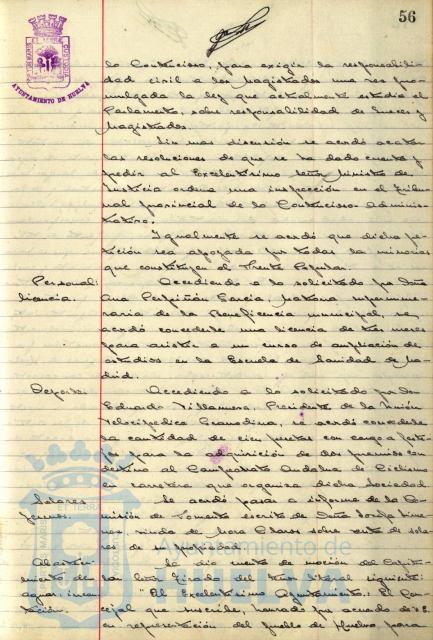 56
AYUNTAMIENTO DE HUELVA
lo Contencioso, para exigir la responsabili-
dad civil a los Magistrados una vez pro-
mulgada la ley que actualmente estudia el
Parlamento, sobre responsabilidad de Jueces y
Magistrados.
Sin mas discusión se acordó acatar
las resoluciones de que se ha dado cuenta y
pedir al Excelentísimo señor Ministro de
Justicia ordene una inspección en el Tribu-
nal provincial de lo Contencioso-adminis-
trativo.
Igualmente se acordó que dicha pe-
tición sea apoyada por todas la minorias
que constituyen el Frente Popular.
Personal:
licencia.
Accediendo a lo solicitado por Doña
Ana Perpiñán García, Matrona supernume-
raria de la Beneficencia municipal, se
acordó concederle una licencia de tres meses
para asistir a un curso de ampliación de
estudios en la Escuela de Sanidad de Ma-
drid.
Deportes.
Accediendo a lo solicitado por Don
Eduardo Villamera, Presidente de la Unión
Velocipedica, se acordó concederle
la cantidad de cien pesetas con cargo a feste-
jos para la adquisición de dos premios con
destino al Campeonato Andaluz de Ciclismo
en carretera que organiza dicha Sociedad.
Solares
Se acordó pasar a informe de la Co-
misión de Fomento escrito de Doña Josefa
viuda de Mora Claros sobre venta de sola-
res de su propiedad.
Abasteci-
miento de
aguas: incau-
tación.
Se dio cuenta de moción del Capitu-
lar señor Tirado del tenor literal siguiente:
"Al Excelentísimo Ayuntamiento: El Con-
cejal que suscribe, honrado por acuerdo de V.E.
en representación del pueblo de Huelva para
Ayuntamiento de
HUELVA